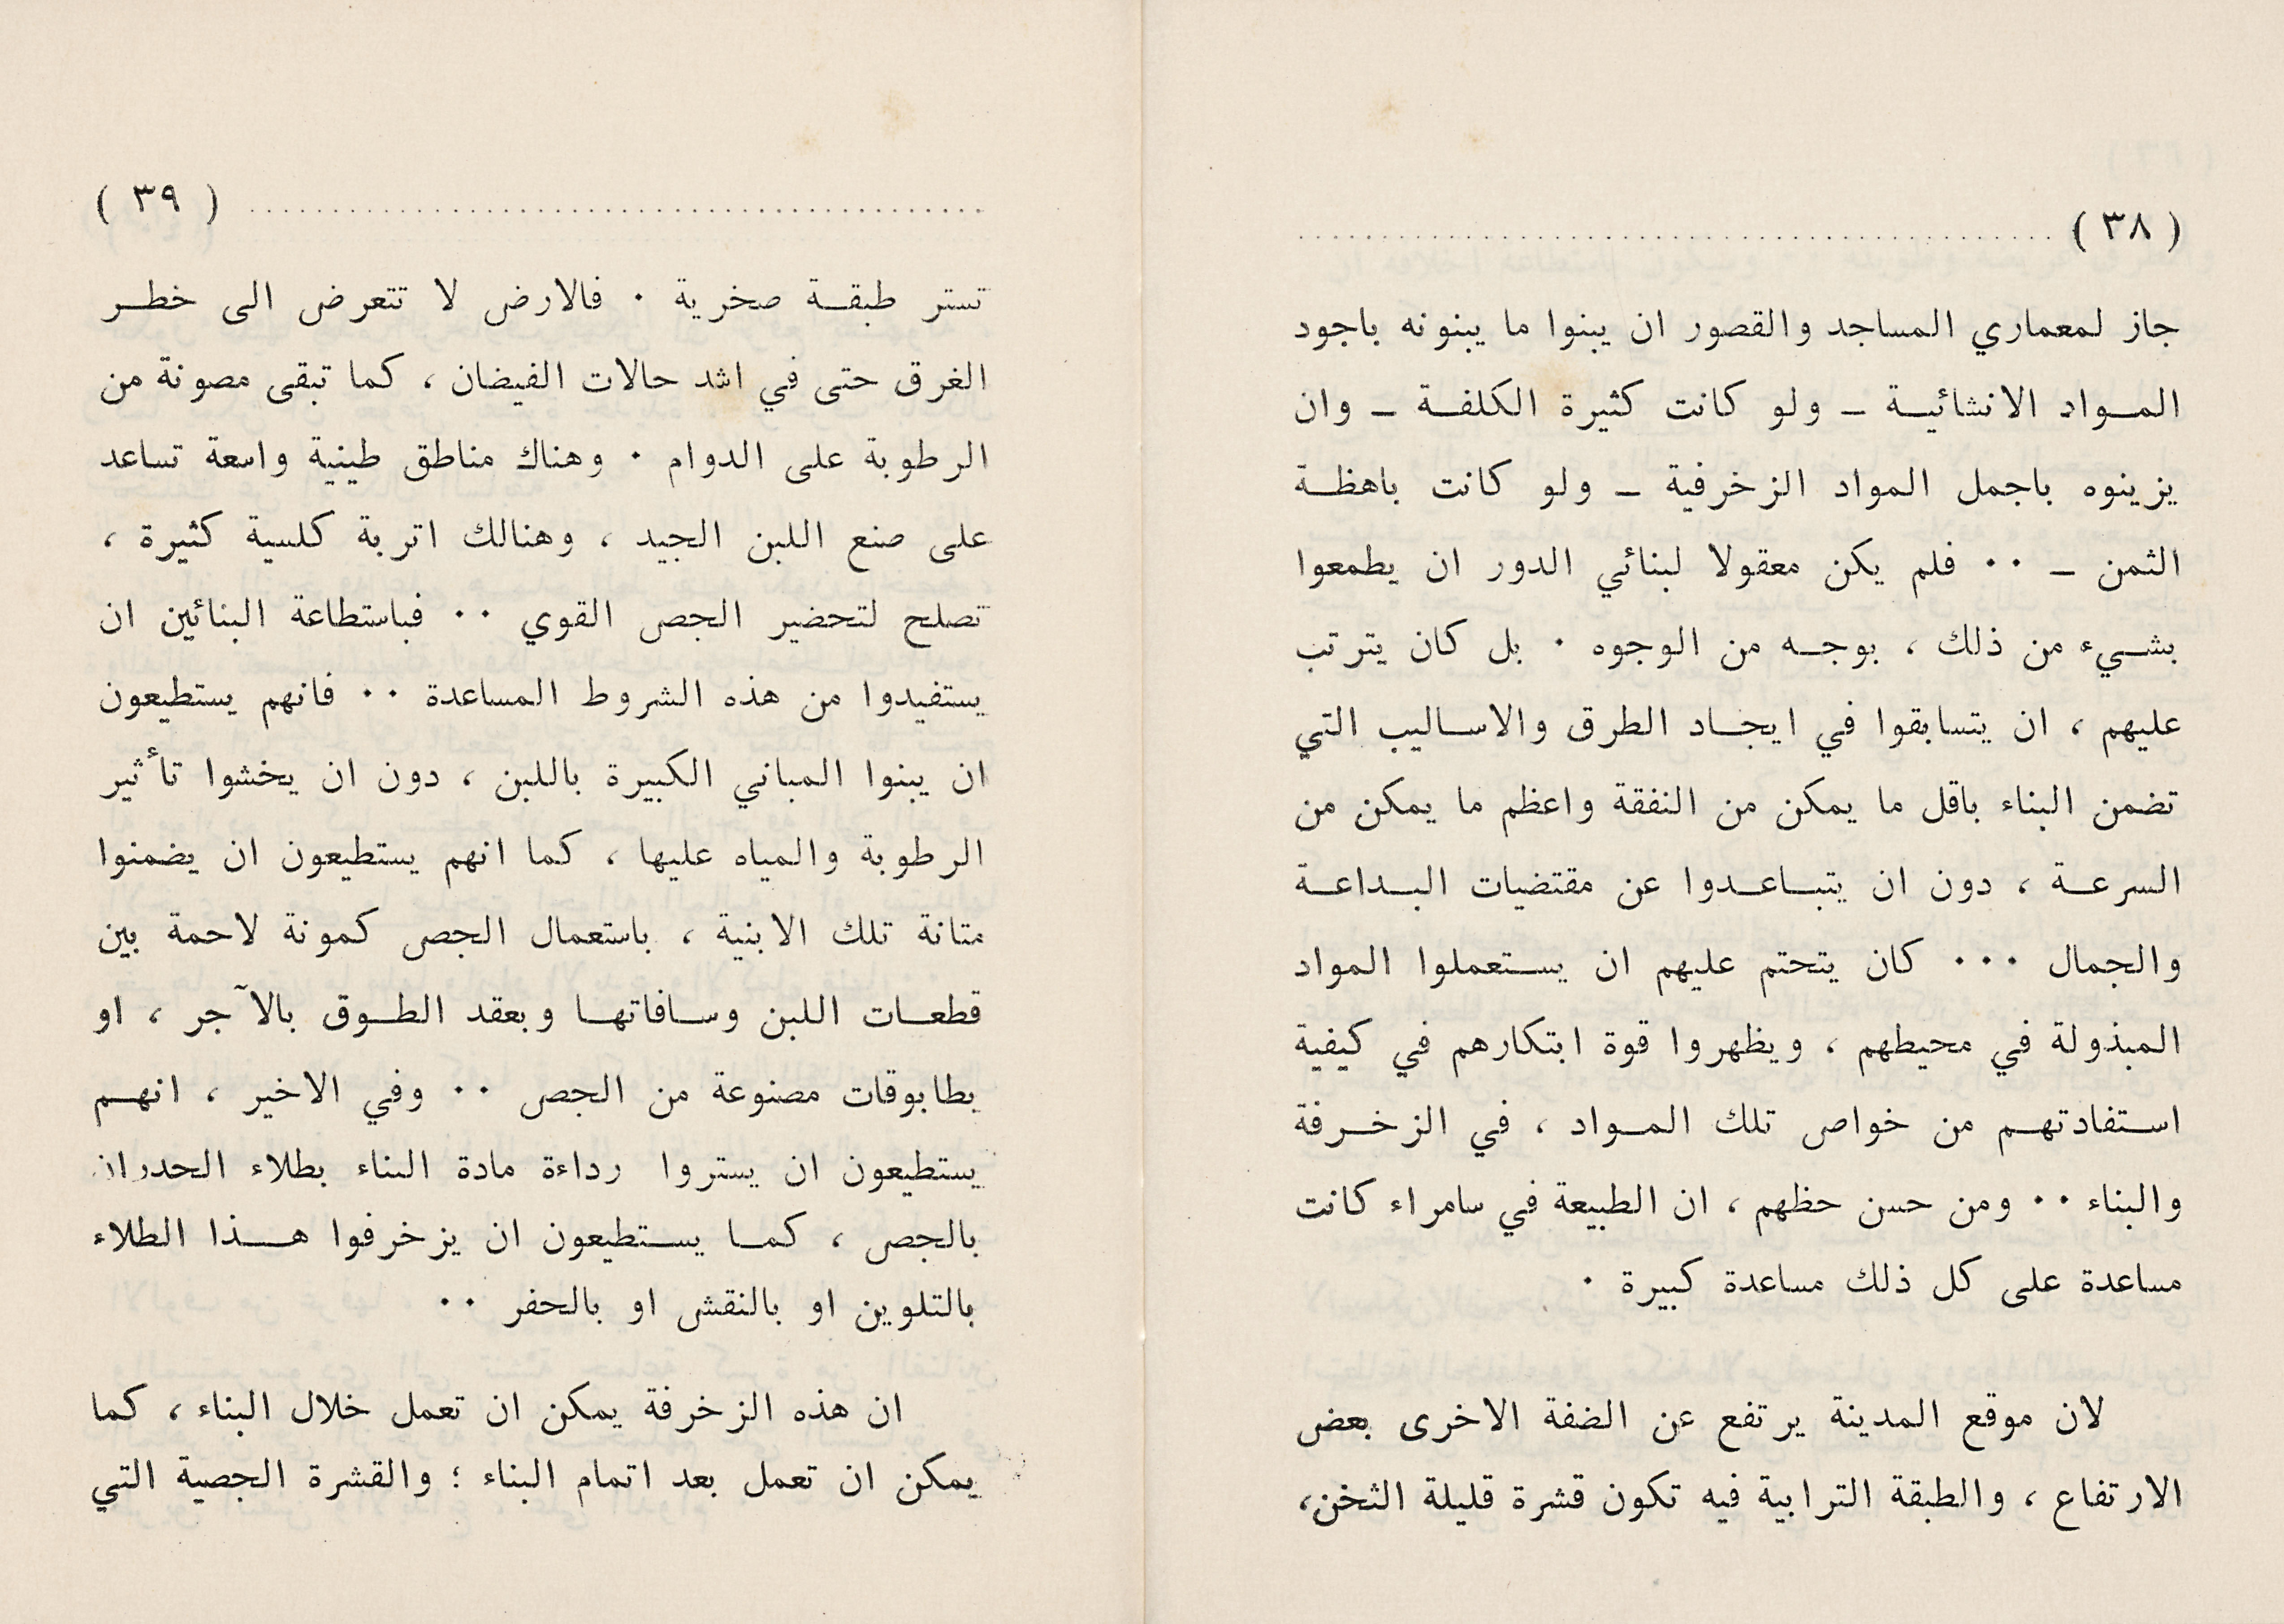 ( ٣٨ )
جاز لمعماري المساجد والقصور ان يبنوا ما يبنونه باجود
المـواد الانشائيـة ـ ولو كانت كثيرة الكلفـة ـ وان
يزينوه باجمل المواد الزخرفية ـ ولو كانت باهظـة
الثمن ـ ٠٠ فلم يكن معقولا لبنائي الدور ان يطمعوا
بشـيء من ذلك ، بوجـه من الوجوه ٠ بل كان يترتب
عليهم ، ان يتسابقوا في ايجـاد الطرق والاسـاليب التي
تضمن البناء باقل ما يمكن من النفقة واعظم ما يمكن من
السرعـة ، دون ان يتبـاعـدوا عن مقتضيات البـداعـة
والجمال ٠٠٠ كان يتحتم عليهم ان يسـتعملوا المواد
المبذولة في محيطهم ، ويظهروا قوة ابتكارهم في كيفية
اسـتفادتهـم من خواص تلك المـواد ، في الزخـرفة
والبناء ٠٠ ومن حسن حظهم ، ان الطبيعة في سامراء كانت
مساعدة على كل ذلك مساعدة كبيرة ٠
لان موقع المدينة يرتفع عن الضفة الاخرى بعض
الارتفاع ، والطبقة الترابية فيه تكون قشرة قليلة الثخن،
( ٣٩ )
تستر طبقـة صخرية ٠ فالارض لا تتعرض الى خطـر
الغرق حتى في اشد حالات الفيضان ، كما تبقى مصونة من
الرطوبة على الدوام ٠ وهناك مناطق طينية واسعة تساعد
على صنع اللبن الجيد ، وهنالك اتربة كلسية كثيرة ،
تصلح لتحضير الجص القوي ٠٠ فباستطاعة البنائين ان
يستفيدوا من هذه الشروط المساعدة ٠٠ فانهم يستطيعون
ان يبنوا المباني الكبيرة باللبن ، دون ان يخشوا تأثير
الرطوبة والمياه عليها ، كما انهم يستطيعون ان يضمنوا
متانة تلك الابنية ، باستعمال الجص كمونة لاحمة بين
قطعـات اللبن وسـافاتهـا وبعقد الطـوق بالآجر ، او
بطابوقات مصنوعة من الجص ٠٠ وفي الاخير ، انهـم
يستطيعون ان يستروا رداءة مادة البناء بطلاء الجدران
بالجص ، كمـا يسـتطيعون ان يزخرفوا هـذا الطلاء
بالتلوين او بالنقش او بالحفر ٠٠
ان هذه الزخرفة يمكن ان تعمل خلال البناء ، كما
يمكن ان تعمل بعد اتمام البناء ؛ والقشرة الجصية التي